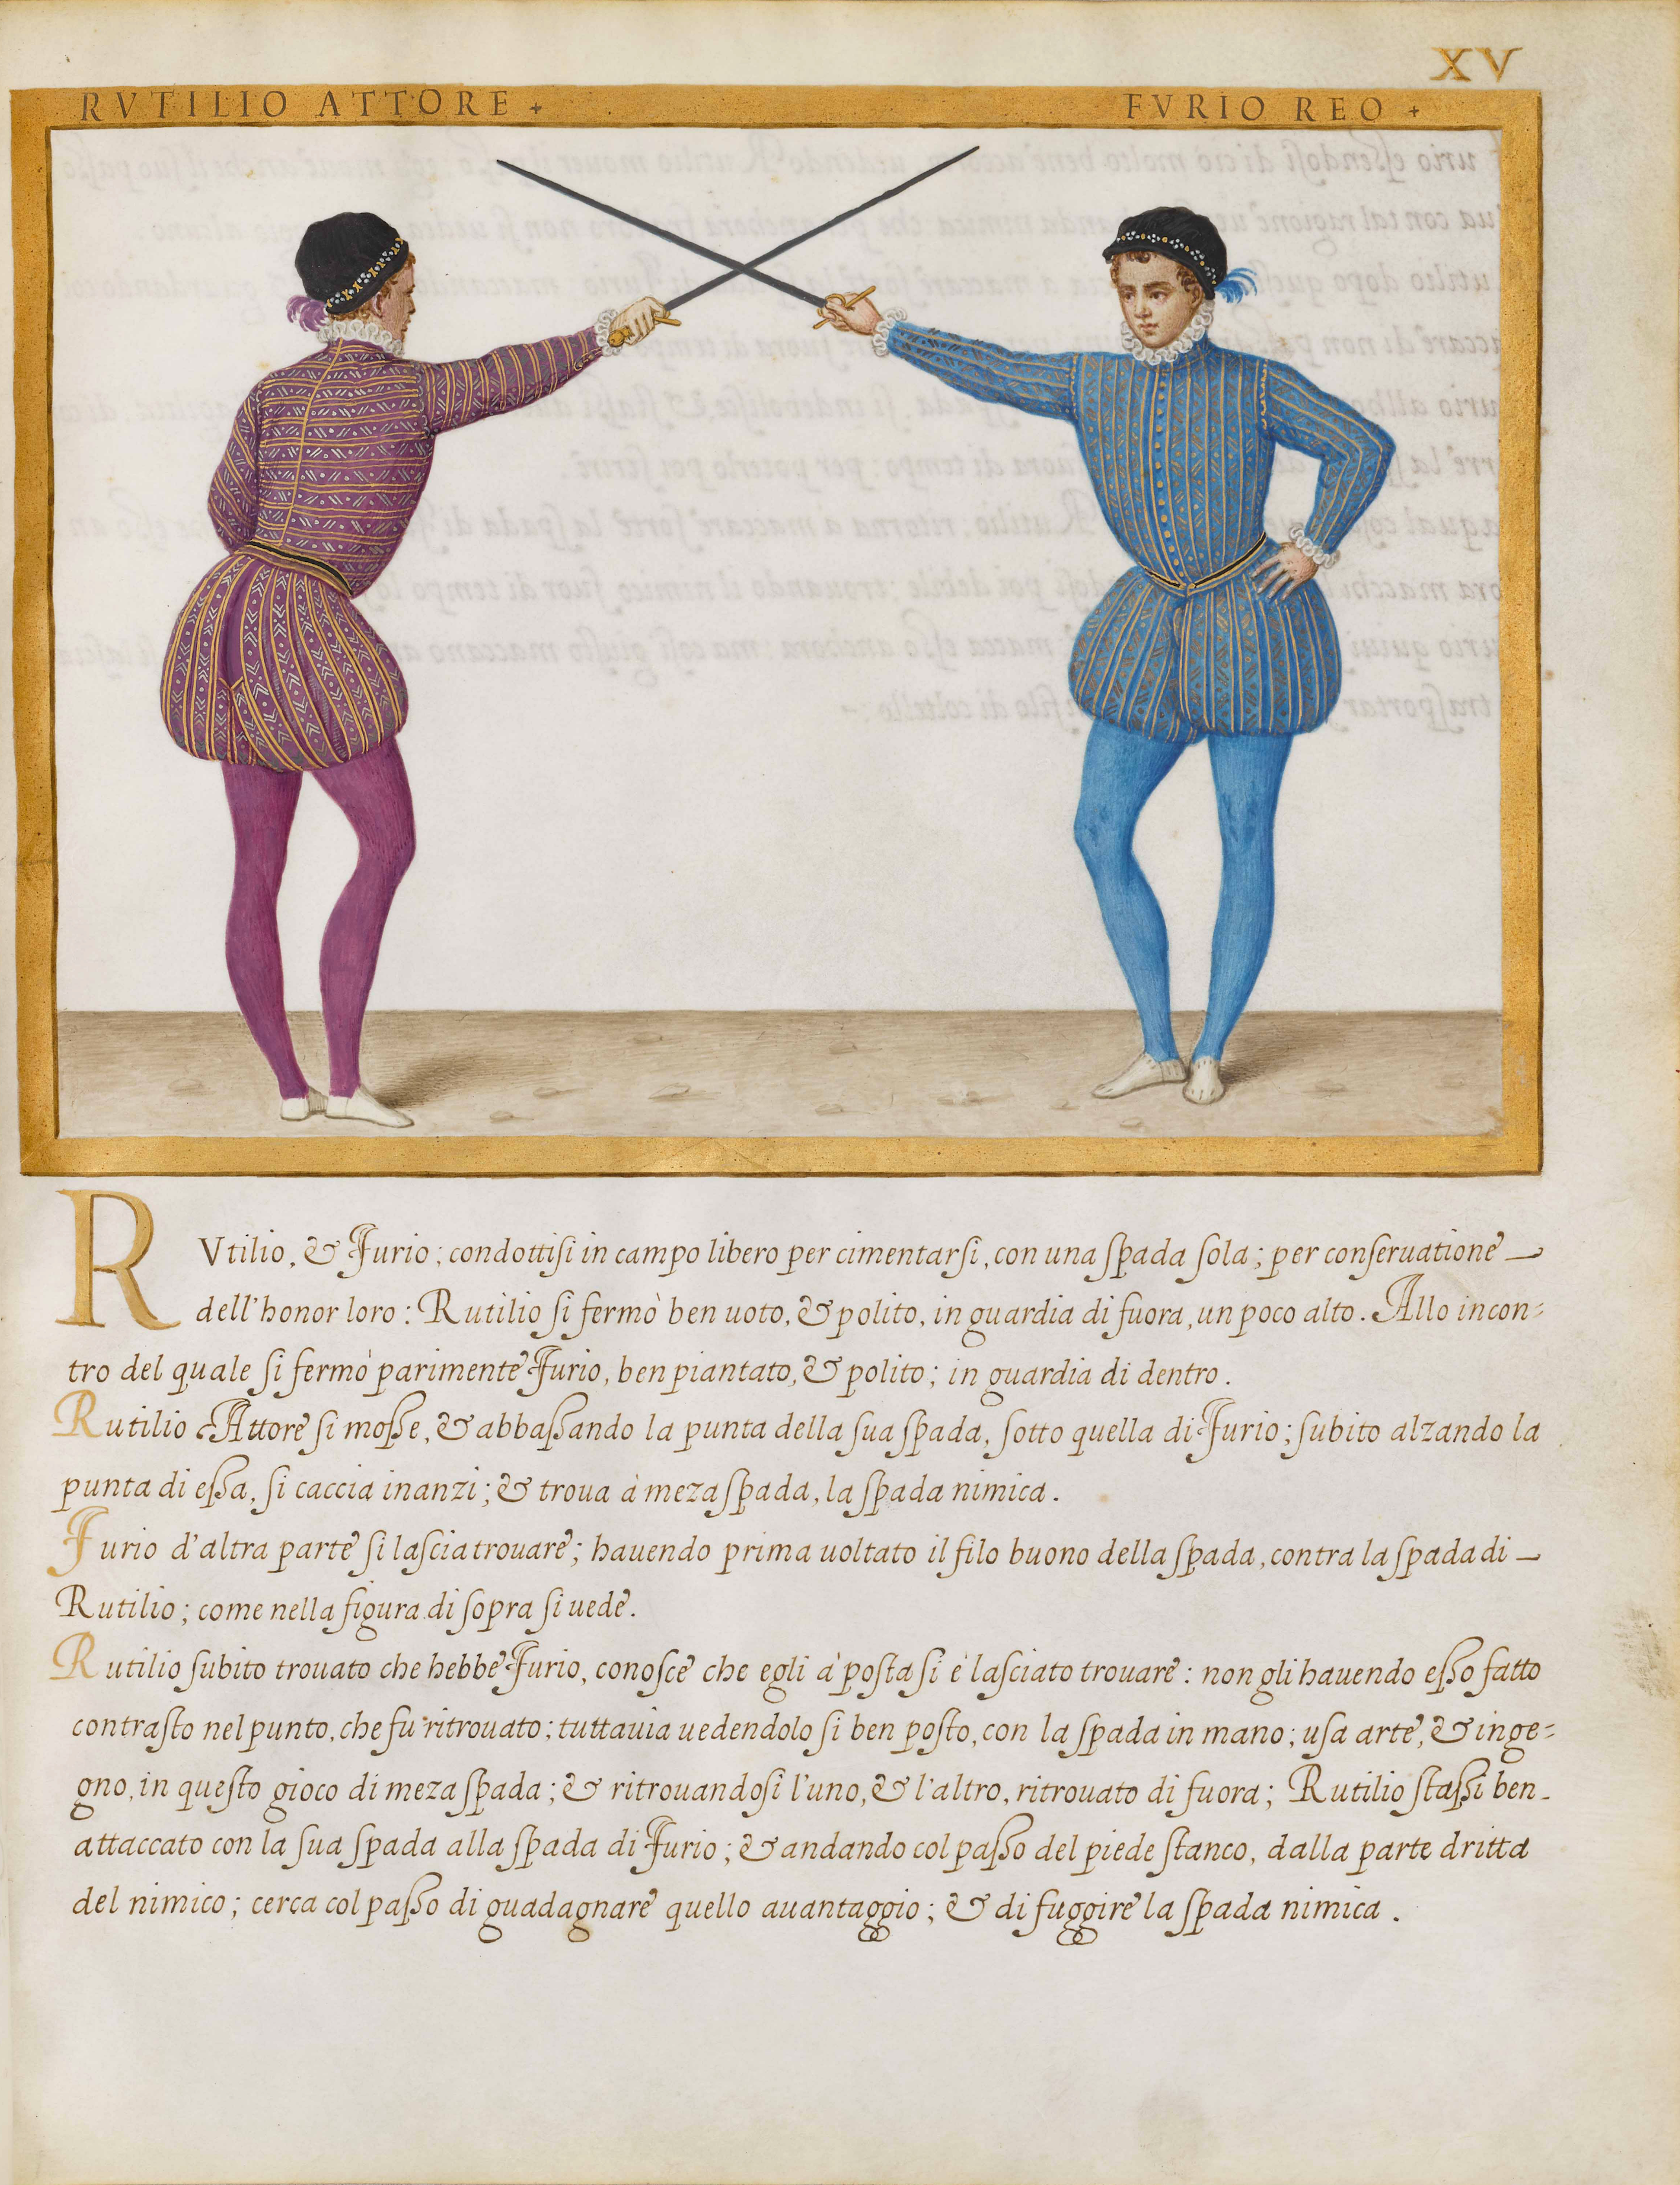 XV
RVTILIO ATTORE +
FVRIO REO +
RVtilio, & Furio; condottiſi in campo libero per cimentarſi, con una ſpada ſola; per conſeruatione
dell'honor loro: Rutilio ſi fermò ben uoto, & polito, in guardia di fuora, un poco alto. Allo incon=
tro del quale ſi fermò parimente Furio, ben piantato, & polito; in guardia di dentro.
Rutilio Attore ſi moſſe, & abbaſſando la punta della ſua ſpada, ſotto quella di Furio; ſubito alzando la
punta di eſſa, ſi caccia inanzi; & troua à meza ſpada, la ſpada nimica.
Furio d'altra parte ſi laſcia trouare; hauendo prima uoltato il filo buono della ſpada, contra la ſpada di
Rutilio; come nella figura di ſopra ſi uede.
Rutilio ſubito trouato che hebbe Furio, conoſce che egli à poſta ſi è laſciato trouare: non gli hauendo eſſo fatto
contraſto nel punto, che fu ritrouato; tuttauia uedendolo ſi ben poſto, con la ſpada in mano; uſa arte, & inge=
gno, in queſto gioco di meza ſpada; & ritrouandoſi l'uno, & l'altro, ritrouato di fuora; Rutilio ſtaſſi ben
attaccato con la ſua ſpada alla ſpada di Furio; & andando col paſſo del piede ſtanco, dalla parte dritta
del nimico; cerca col paſſo di guadagnare quello auantaggio; & di fuggire la ſpada nimica.